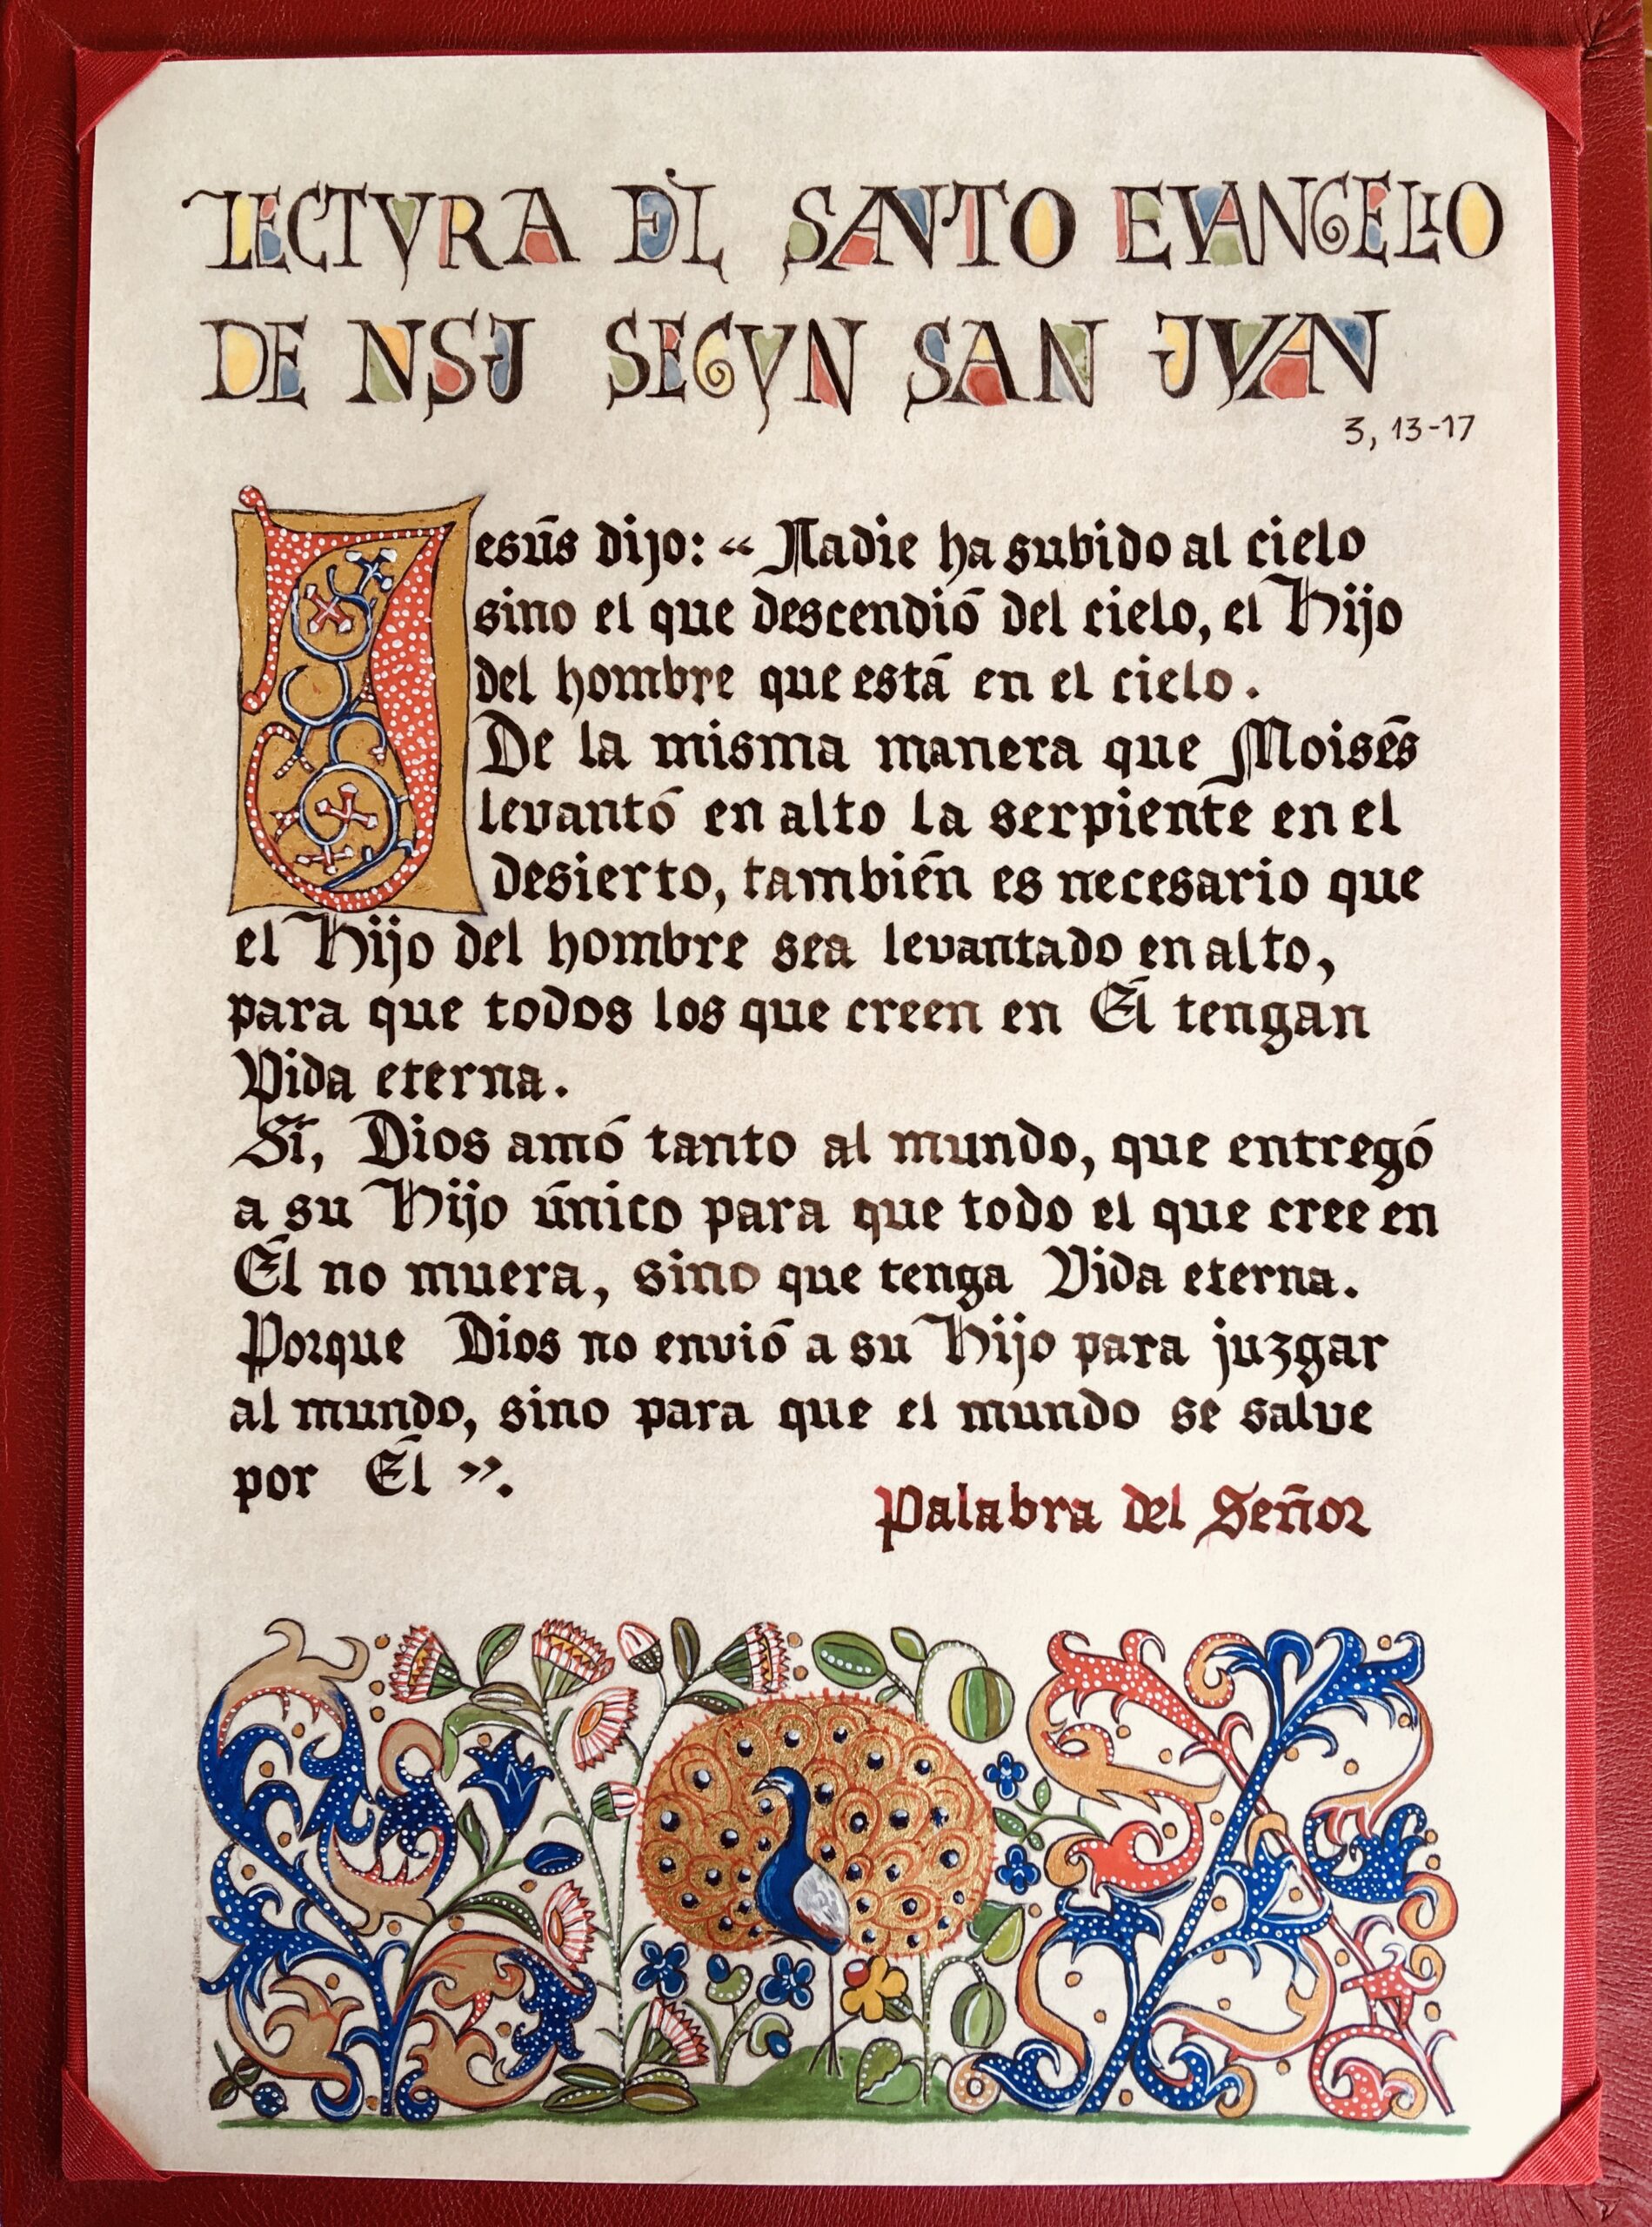 LECTVRA DEL SANTO EVANGELIO
DE NSJ SEGVN SAN JVAN
3, 13-17
Jesús dijo: “ Nadie ha subido al cielo
sino el que descendió del cielo, el Hijo
del hombre que está en el cielo.
De la misma manera que Moisés
levantó en alto la serpiente en el
desierto, también es necesario que
el Hijo del hombre sea levantado en alto,
para que todos los que creen en Él tengan
Vida eterna.
Sí, Dios amó tanto al mundo, que entregó
a su Hijo único para que todo el que cree en
Él no muera, sino que tenga Vida eterna.
Porque Dios no envió a su Hijo para juzgar
al mundo, sino para que el mundo se salve
por Él ”.
Palabra del Señor